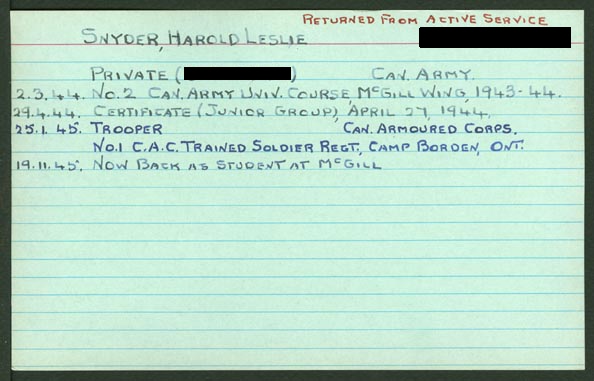 RETURNED FROM ACTIVE SERVICE
SNYDER, HAROLD LESLIE
PRIVATE ( ) CAN. ARMY.
2.3.44. NO.2 CAN. ARMY UNIV. COURSE MCGILL WING, 1943-44.
29.4.44. CERTIFICATE (JUNIOR GROUP), APRIL 27, 1944.
25.1.45. TROOPER CAN. ARMOURED CORPS.
NO.1 C.A.C. TRAINED SOLDIER REGT., CAMP BORDEN, ONT.
19.11.45. NOW BACK AS STUDENT AT MCGILL